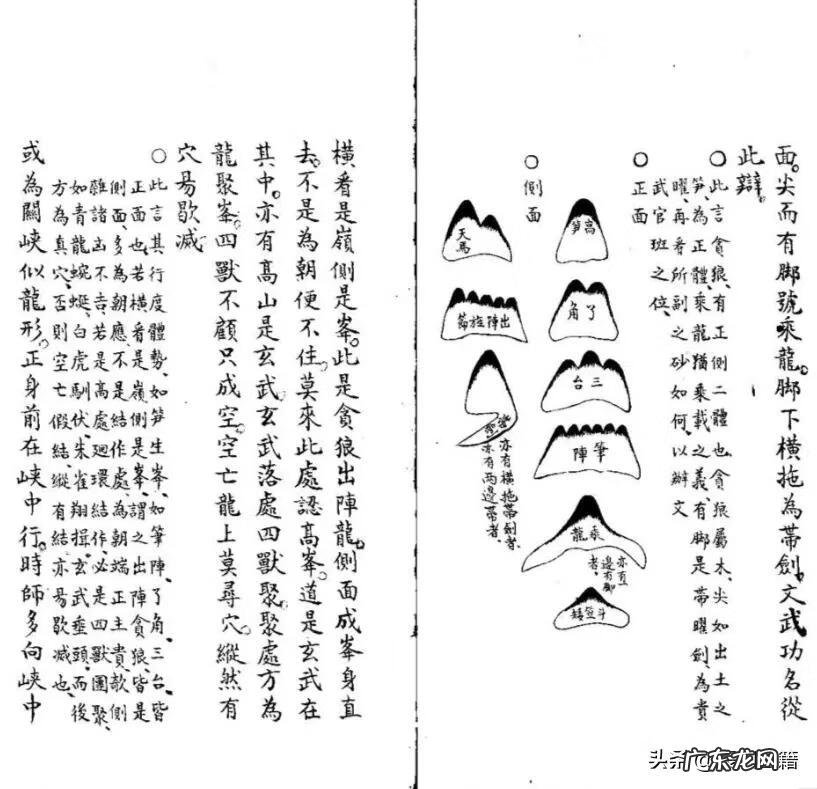 面。尖而有脚號乘龍。脚下橫拖為帶劍。文武功名從
此辯。
○此言貪狼、有正側二體也、貪狼屬木、尖如出土之
笋、為正體、乘龍猶乘載之義、有脚是帶曜劍為貴
曜、再看所副之砂如何、以辦文
武官班之位、
○正面
高笋
了角
三台
筆陣
乘龍
亦有
邊有脚
者、
斗笠矮
○側面
天馬
出陣旌節
亦有橫拖帶劍者、
亦有两邊帶者、
橫看是嶺側是峯。此是貪狼出陣龍。側面成峯身直
去。不是為朝便不住。莫來此處認高峯。道是玄武在
其中。亦有高山是玄武。玄武落處四獸聚。聚處方為
龍聚峯。四獸不顧只成空。空亡龍上莫尋穴。縱然有
穴易歇滅
○此言其行度體勢、如笋生峯、如筆陣、了角、三台、皆
正面也、若橫看是嶺側是峯、謂之出陣貪狼、皆是
側面、多為朝應、不是結作處、為朝端正主貴、欹側
雜諸凶不吉、若是高處廻環結作、必是四獸團聚、
如青龍蜿蜒、白虎馴伏、朱雀翔揖、玄武垂頭、而後
方為真穴、否則空亡假結、縱有結亦易歇滅也、
或為關峽似龍形。正身前在峽中行。時師多向峽中
头条
广东龙网
籍